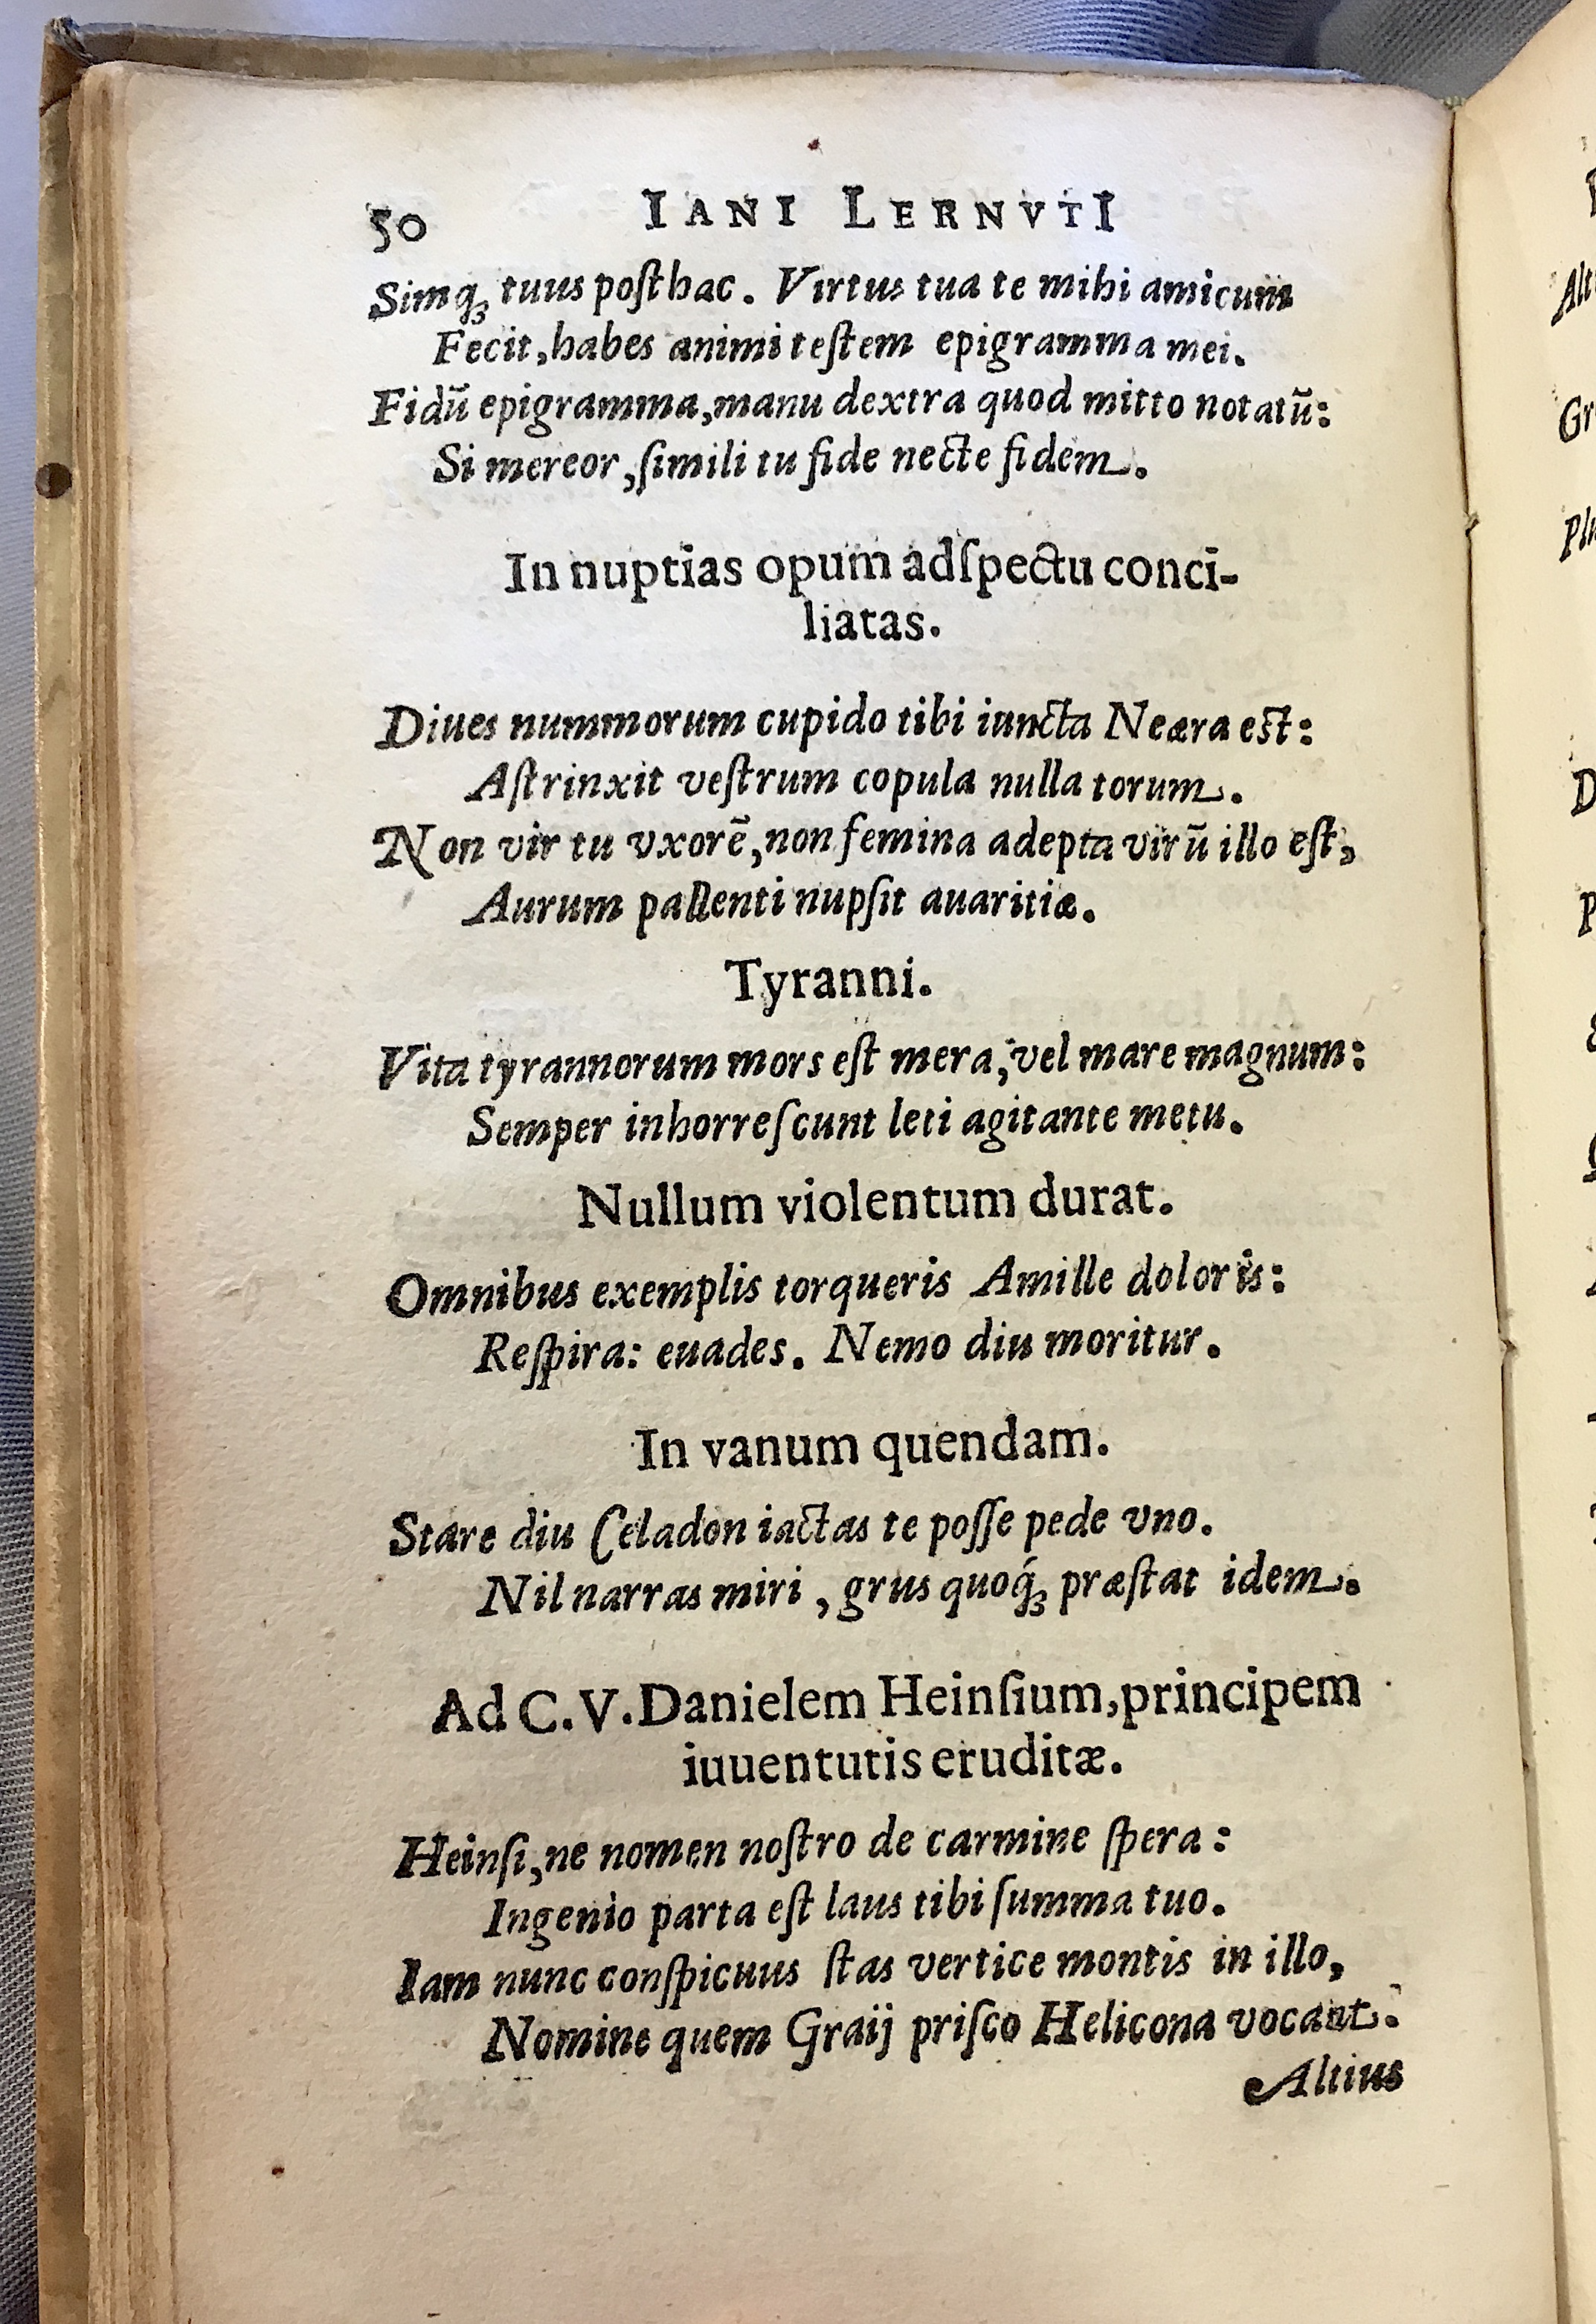 50 IANI LERNVTI
Simq; tuus posthac. Virtus tua te mihi amicum
Fecit, habes animi testem epigramma mei.
Fidū epigramma, manu dextra quod mitto notatū:
Si mereor, simili tu fide necte fidem.
In nuptias opum adspectu conci-
liatas.
Diues nummorum cupido tibi iuncta Neæra est:
Astrinxit vestrum copula nulla torum.
Non vir tu vxorē, non femina adepta virū illo est,
Aurum pallenti nupsit auaritiæ.
Tyranni.
Vita tyrannorum mors est mera, vel mare magnum:
Semper inhorrescunt leti agitante metu.
Nullum violentum durat.
Omnibus exemplis torqueris Amille doloris:
Respira: euades. Nemo diu moritur.
In vanum quendam.
Stare diu Celadon iactas te posse pede vno.
Nil narras miri, grus quoq́; præstat idem.
Ad C. V. Danielem Heinsium, principem
iuuentutis eruditæ.
Heinsi, ne nomen nostro de carmine spera:
Ingenio parta est laus tibi summa tuo.
Iam nunc conspicuus stas vertice montis in illo,
Nomine quem Graij prisco Helicona vocant.
Altius